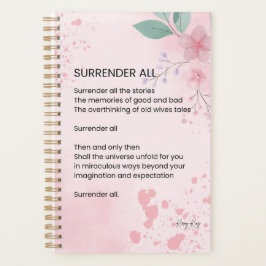 SURRENDER ALL
Surrender all the stories
The memories of good and bad
The overthinking of old wives tales
Surrender all
Then and only then
Shall the universe unfold for you
in miraculous ways beyond your
imagination and expectation
Surrender all.